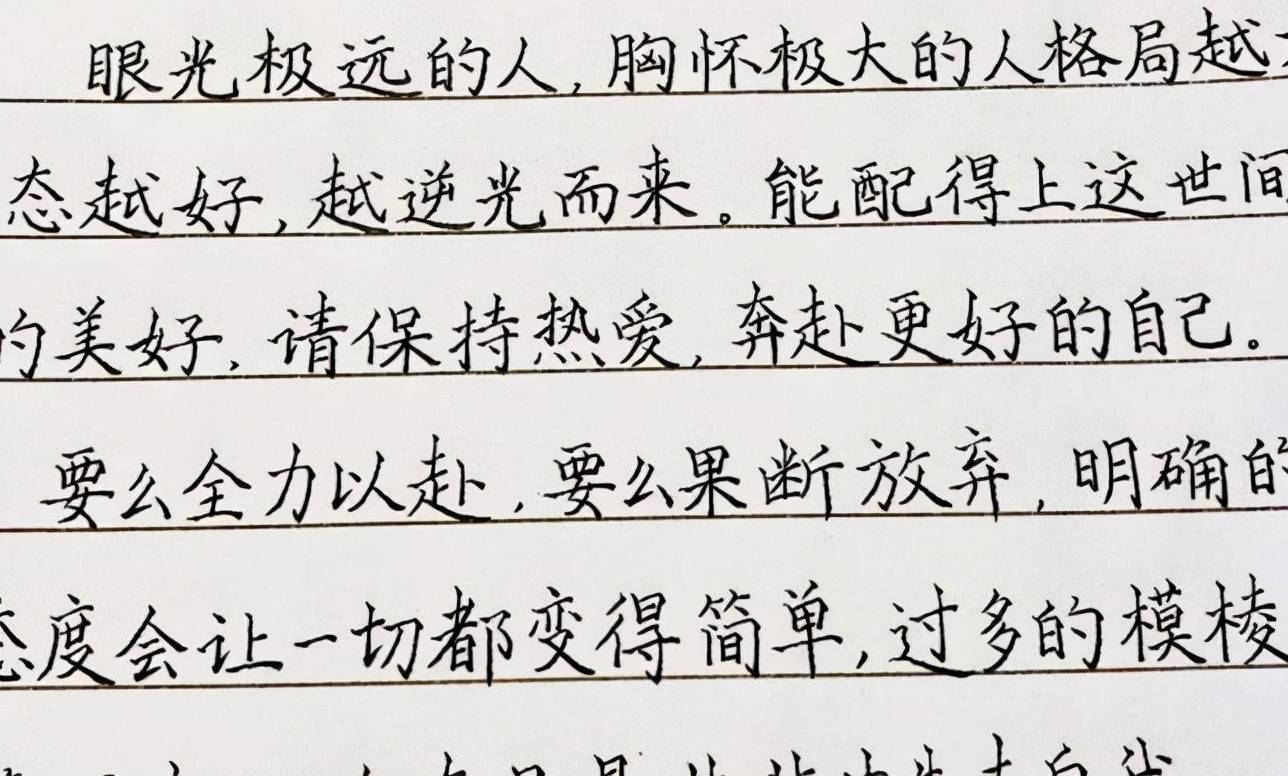 眼光极远的人,胸怀极大的人格局越
态越好,越逆光而来。能配得上这世间
的美好,请保持热爱,奔赴更好的自己。
要么全力以赴,要么果断放弃,明确的
态度会让一切都变得简单,过多的模棱